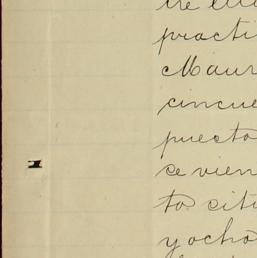 practi
Maur
cincue
puesto
se vien
to cit
y ocho